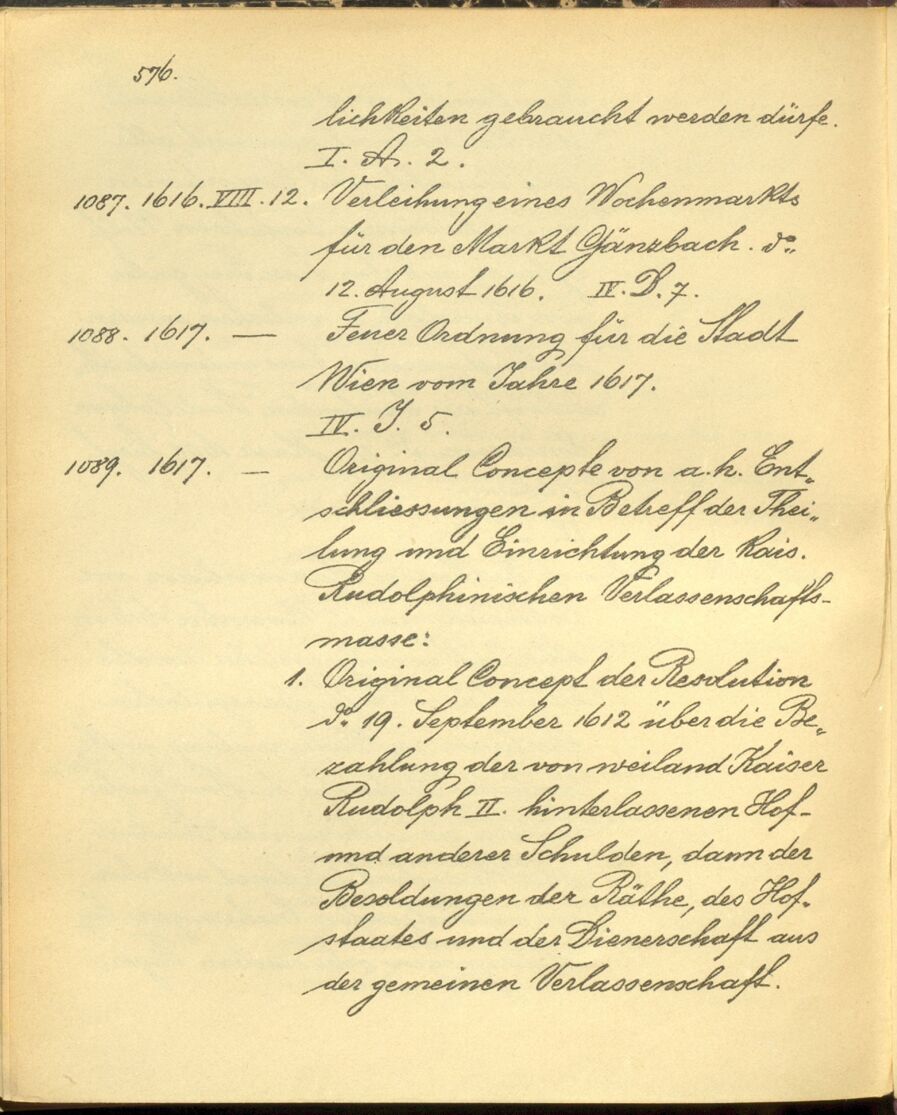 576.
lichkeiten gebraucht werden dürfe.
I. A. 2.
1087. 1616. VIII. 12. Verleihung eines Wochenmarkts
für den Markt Gänzbach. do„
12. August 1616. IV. D. 7.
1088. 1617. — Feuer Ordnung für die Stadt
Wien vom Jahre 1617.
IV. J. 5.
1089. 1617. — Original Concepte von a. h. Ent„
schliessungen in Betreff der Thei„
lung und Einrichtung der kais.
Rudolphinischen Verlassenschafts-
masse:
1. Original Concept der Resolution
do 19. September 1612 über die Be„
zahlung der von weiland Kaiser
Rudolph II. hinterlassenen Hof-
und anderer Schulden, dann der
Besoldungen der Räthe, des Hof-
staates und der Dienerschaft aus
der gemeinen Verlassenschaft.